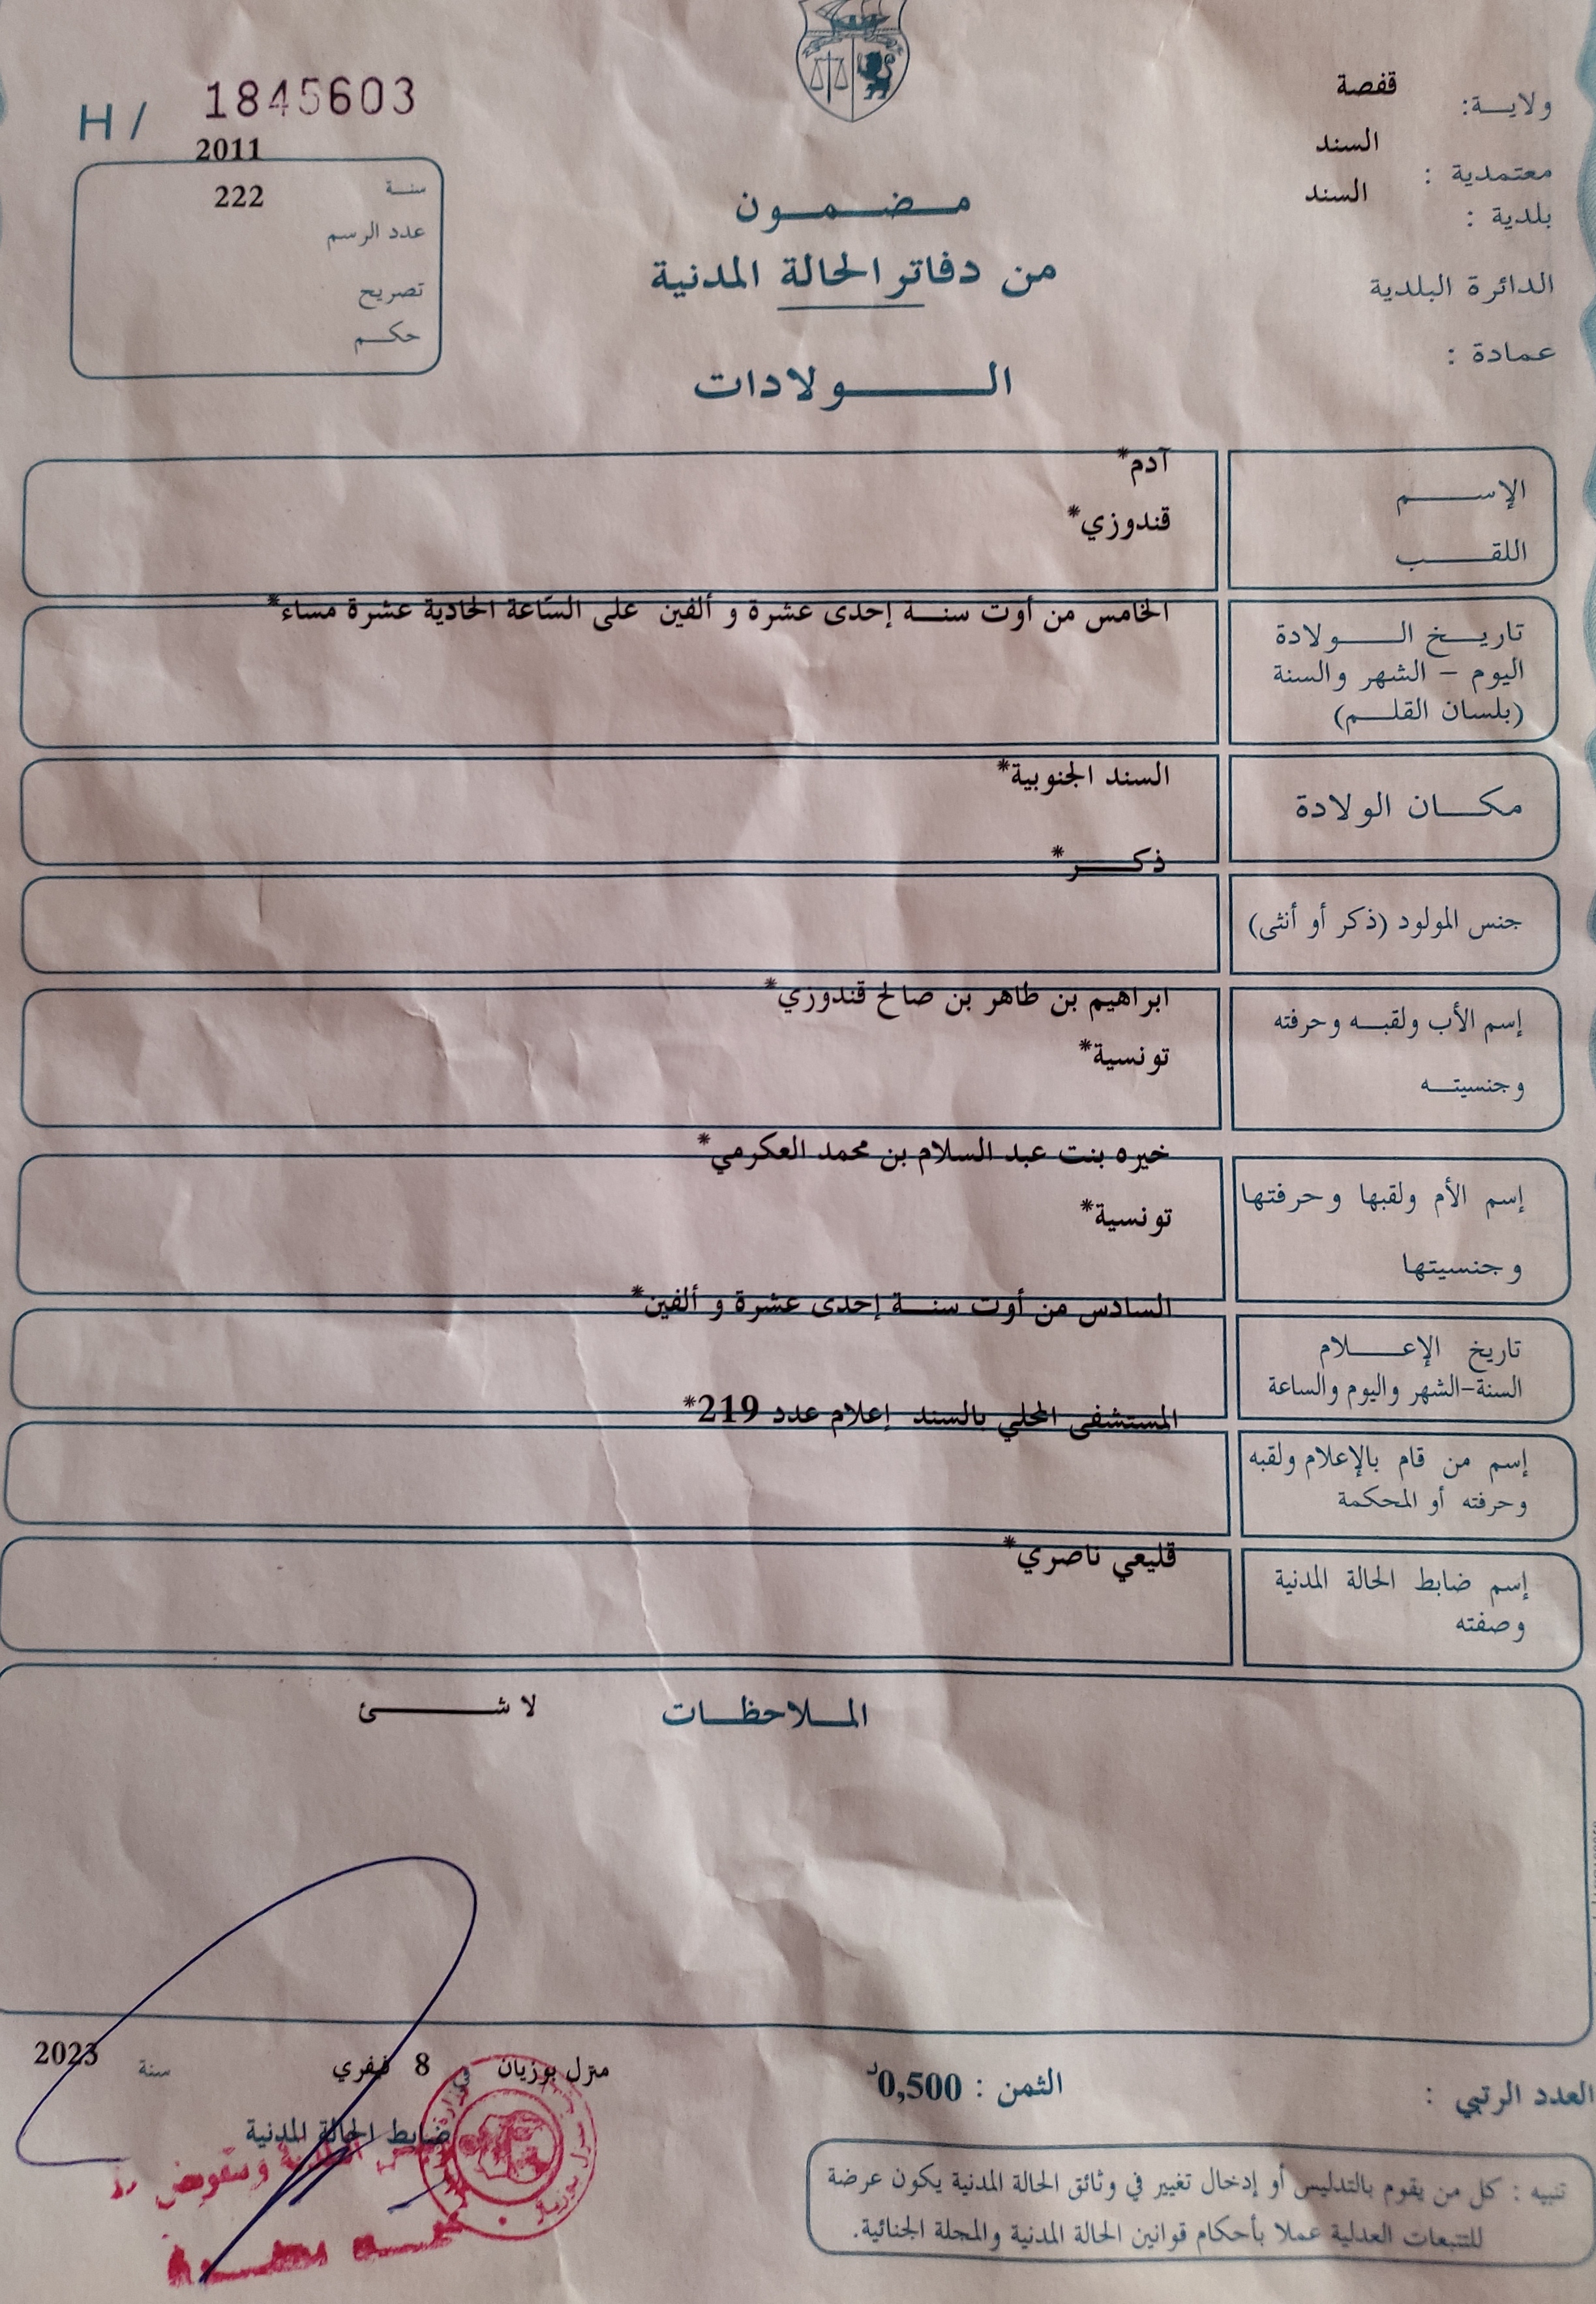 H / 1845603
ولاية: قفصة
معتمدية : السند
بلدية : السند
الدائرة البلدية
عمادة :
2011
سنة
222
عدد الرسم
تصريح
حكم
مضمون
من دفاتر الحالة المدنية
الولادات
الإسم
آدم*
اللقب
قندوزي*
تاريخ الولادة
اليوم – الشهر والسنة
(بلسان القلم)
الخامس من أوت سنة إحدى عشرة و ألفين على السّاعة الحادية عشرة مساء*
مكان الولادة
السند الجنوبية*
جنس المولود (ذكر أو أنثى)
ذكر*
إسم الأب ولقبه وحرفته
ابراهيم بن طاهر بن صالح قندوزي*
وجنسيته
تونسية*
إسم الأم ولقبها وحرفتها
خيره بنت عبد السلام بن محمد العكرمي*
وجنسيتها
تونسية*
تاريخ الإعلام
السنة-الشهر واليوم والساعة
السادس من أوت سنة إحدى عشرة و ألفين*
إسم من قام بالإعلام ولقبه
وحرفته أو المحكمة
المستشفى المحلي بالسند إعلام عدد 219*
إسم ضابط الحالة المدنية
وصفته
قليعي ناصري*
الملاحظات لا شئ
العدد الرتبي :
الثمن : 0,500د
منزل بوزيان في 8 فيفري سنة 2023
ضابط الحالة المدنية
تنبيه : كل من يقوم بالتدليس أو إدخال تغيير في وثائق الحالة المدنية يكون عرضة
للتتبعات العدلية عملا بأحكام قوانين الحالة المدنية والمجلة الجنائية.